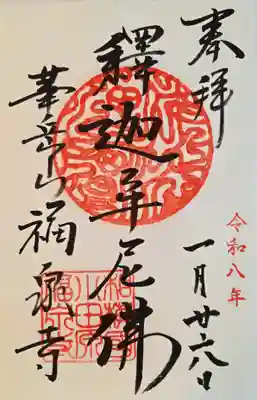 奉拝
令和八年
一月廿六日
釋迦牟尼佛
華岳山福泉寺